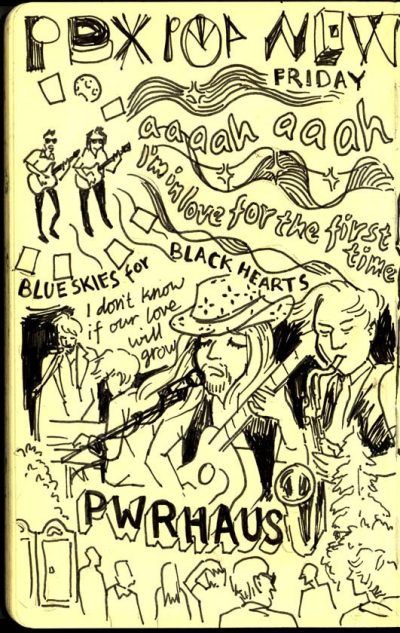 PDX POP NOW
FRIDAY
aaaah aaaah
I'm in love for the first
time
BLUE SKIES for
BLACK HEARTS
I don't know
if our love
will
grow
PWRHAUS